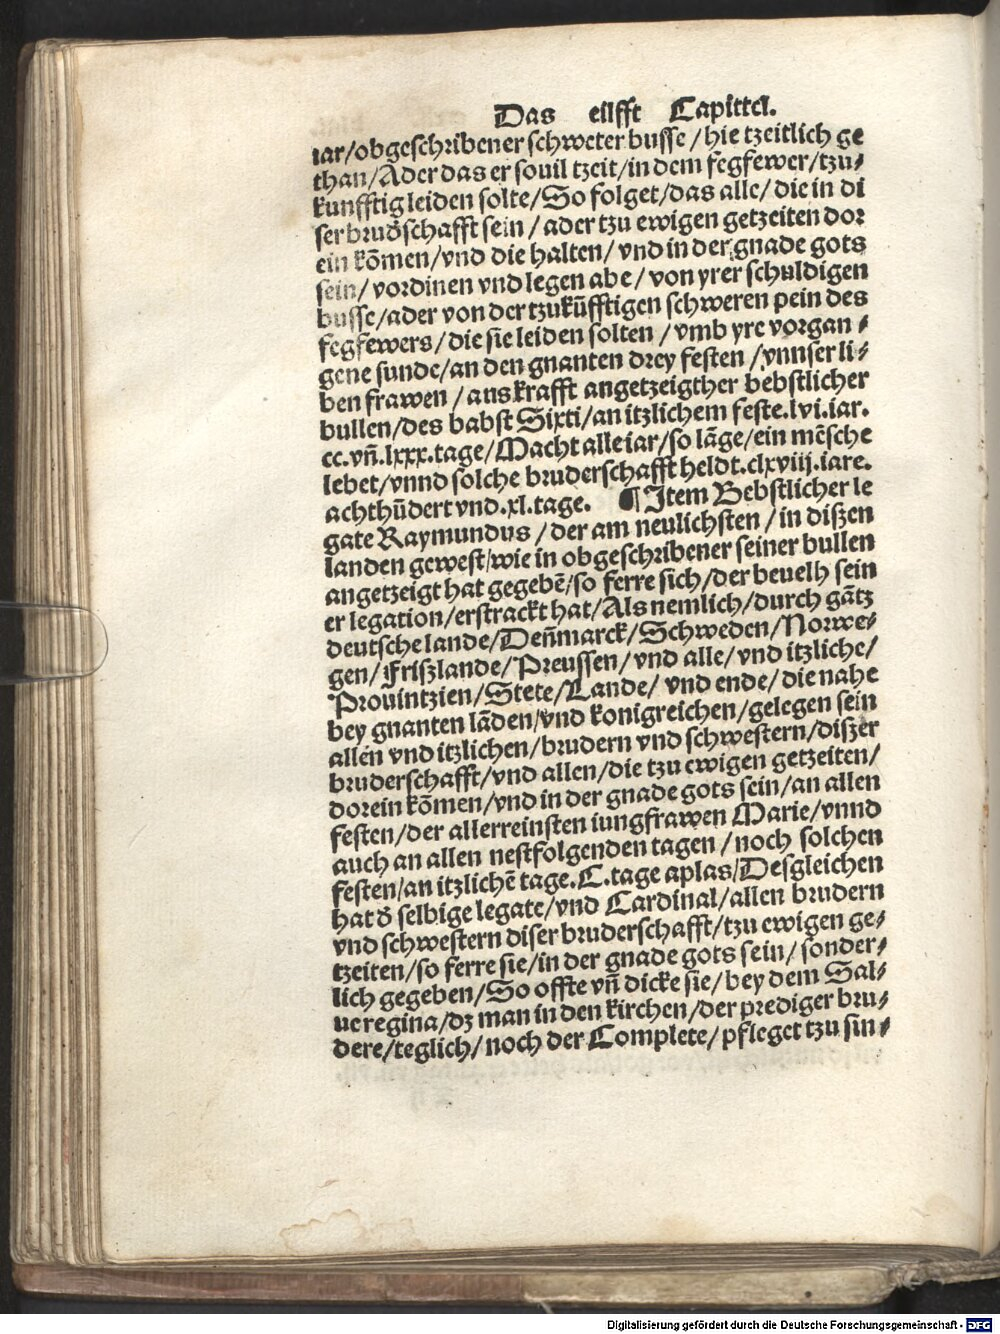 Das eilfft Capittel.
iar/obgeschribener schweter busse/hie tzeitlich ge
than/Ader das er souil tzeit/in dem fegfewer/tzu⸗
kunfftig leiden solte/So folget/das alle/die in di
ser brudʼschafft sein/ader tzu ewigen getzeiten dor
ein kōmen/vnd die halten/vnd in der gnade gots
sein/vordinen vnd legen abe/von yrer schuldigen
busse/ader von der tzukūfftigen schweren pein des
fegfewers/die sie leiden solten/vmb yre vorgan⸗
gene sunde/an den gnanten drey festen/vnnser li⸗
ben frawen/aus krafft angetzeigther bebstlicher
bullen/des babst Sixti/an itzlichem feste.lvi.iar.
cc.vn̄.lxxx.tage/Macht alle iar/so lāge/ein mēsche
lebet/vnnd solche bruderschafft heldt.clxviij.iare.
achthūdert vnd.xl.tage. ¶ Item Bebstlicher le
gate Raymundus/der am neulichsten/in diszen
landen gewest/wie in obgeschribener seiner bullen
angetzeigt hat gegebē/so ferre sich/der beuelh sein
er legation/erstrackt hat/Als nemlich/durch gātz
deutsche lande/Den̄marck/Schweden/Norwe⸗
gen/Friszlande/Preussen/vnd alle/vnd itzliche/
Prouintzien/Stete/Lande/vnd ende/die nahe
bey gnanten lāden/vnd konigreichen/gelegen sein
allen vnd itzlichen/brudern vnd schwestern/diszer
bruderschafft/vnd allen/die tzu ewigen getzeiten/
dorein kōmen/vnd in der gnade gots sein/an allen
festen/der allerreinsten iungfrawen Marie/vnnd
auch an allen nestfolgenden tagen/noch solchen
festen/an itzlichē tage.C.tage aplas/Desgleichen
hat dʼ selbige legate/vnd Cardinal/allen brudern
vnd schwestern diser bruderschafft/tzu ewigen ge⸗
tzeiten/so ferre sie/in der gnade gots sein/sonder⸗
lich gegeben/So offte vn̄ dicke sie/bey dem Sal⸗
ue regina/dz man in den kirchen/der prediger bru⸗
dere/teglich/noch der Complete/pfleget tzu sin⸗
Digitalisierung gefördert durch die Deutsche Forschungsgemeinschaft - DFG